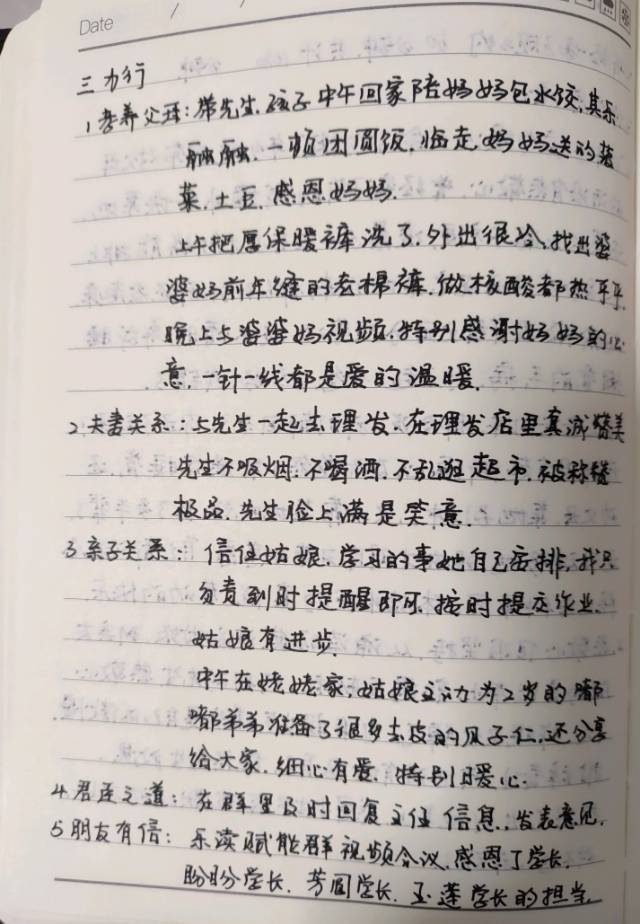 Date / /
三 力行
1,孝养父母:带先生、孩子中午回家陪妈妈包水饺,其乐
融融、一顿团圆饭,临走妈妈送的菠
菜、土豆、感恩妈妈.
上午把厚保暖裤洗了,外出很冷,找出婆
婆妈前年缝的老棉裤.做核酸都热乎乎,
晚上与婆婆妈视频.特别感谢妈妈的心
意,一针一线都是爱的温暖.
2,夫妻关系:与先生一起去理发.在理发店里真诚赞美
先生不吸烟.不喝酒.不乱逛超市.被称赞
极品.先生脸上满是笑意.
3,亲子关系:信任姑娘.学习的事她自己安排,我只
负责到时提醒即可.按时提交作业.
姑娘有进步.
中午在姥姥家,姑娘主动为2岁的嘟
嘟弟弟准备了很多去皮的瓜子仁.还分享
给大家.细心有爱.特别暖心.
4.君臣之道:在群里及时回复主任信息,发表意见.
5 朋友有信:乐读赋能群视频会议.感恩丁学长.
盼盼学长.芳园学长.玉莲学长的担当